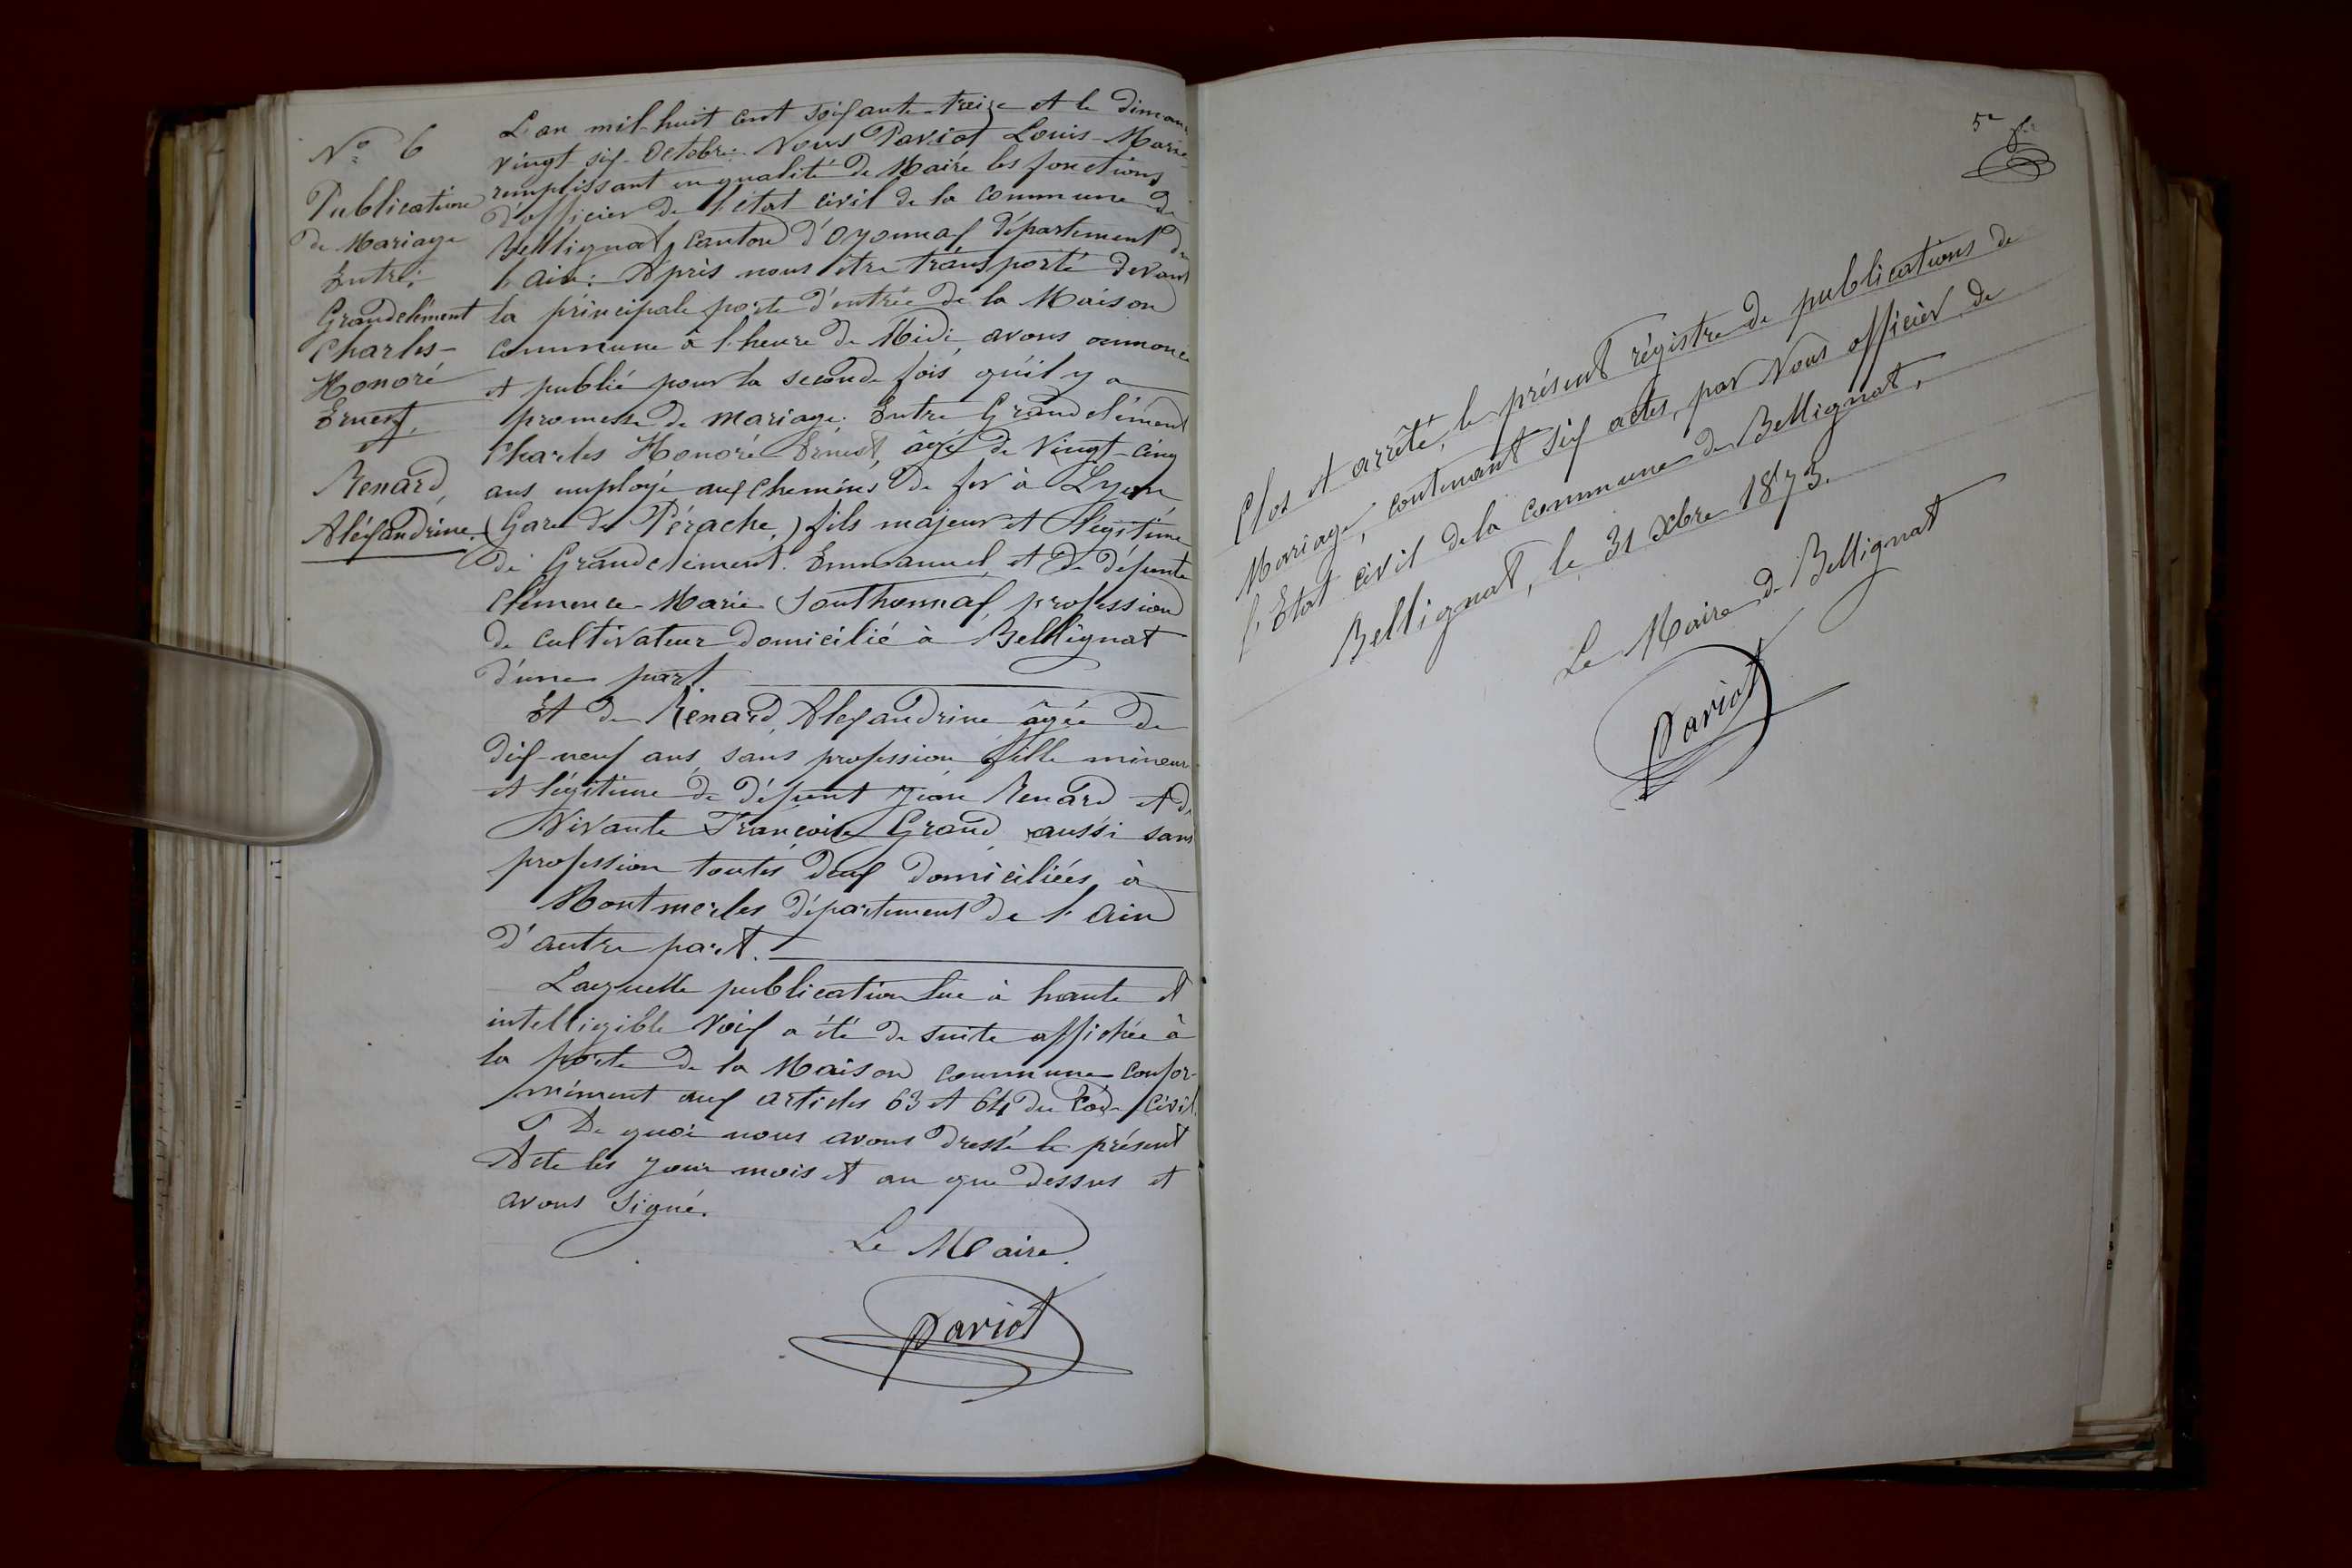 N° 6
Publication
de Mariage
Entre:
Grandclément
Charles-
Honoré
Ernest,
et
Renard,
Aléxandrine.
L'an mil-huit cent soixante-treize et le diman
vingt six Octobre. Nous Pariot Louis-Marie
remplissant en qualité de Maire les fonctions
d'officier de l'état civil de la commune de
Bellignat, canton d'Oyonnax département de
l'ain: Après nous être transporté devant
la principale porte d'entrée de la Maison
commune à l'heure de Midi, avons annoncé
et publié pour la seconde fois, qu'il y a
promesse de mariage. Entre Grandclément
Charles Honoré Ernest, âgé de Vingt-cinq
ans employé aux chemins de fer à Lyon
(Gare de Pérache,) fils majeur et légitime
de Grandclément Emmanuel, et de défunte
Clémence Marie Southonnax, profession
de cultivateur domicilié à Bellignat
d'une part
Et de Renard, Alexandrine âgée de
dix-neuf ans, sans profession fille mineure
et légitime de défunt Jean Renard et de
Vivante Françoise Grand, aussi sans
profession toutes deux domiciliées à
Montmerles département de l'Ain
d'autre part.
Laquelle publication lue à haute et
intelligible Voix a été de suite affichée à
la porte de la Maison commune confor-
mément aux articles 63 et 64 du Code Civil.
De quoi nous avons dressé le présent
Acte les jour mois et an que dessus et
avons signé.
Le Maire.
Pariot
5e
Clos et arrêté, le présent régistre de publications de
Mariage, contenant six actes, par Nous officier de
l'Etat civil de la commune de Bellignat,
Bellignat, le 31 Xbre 1873.
Le Maire de Bellignat
Pariot